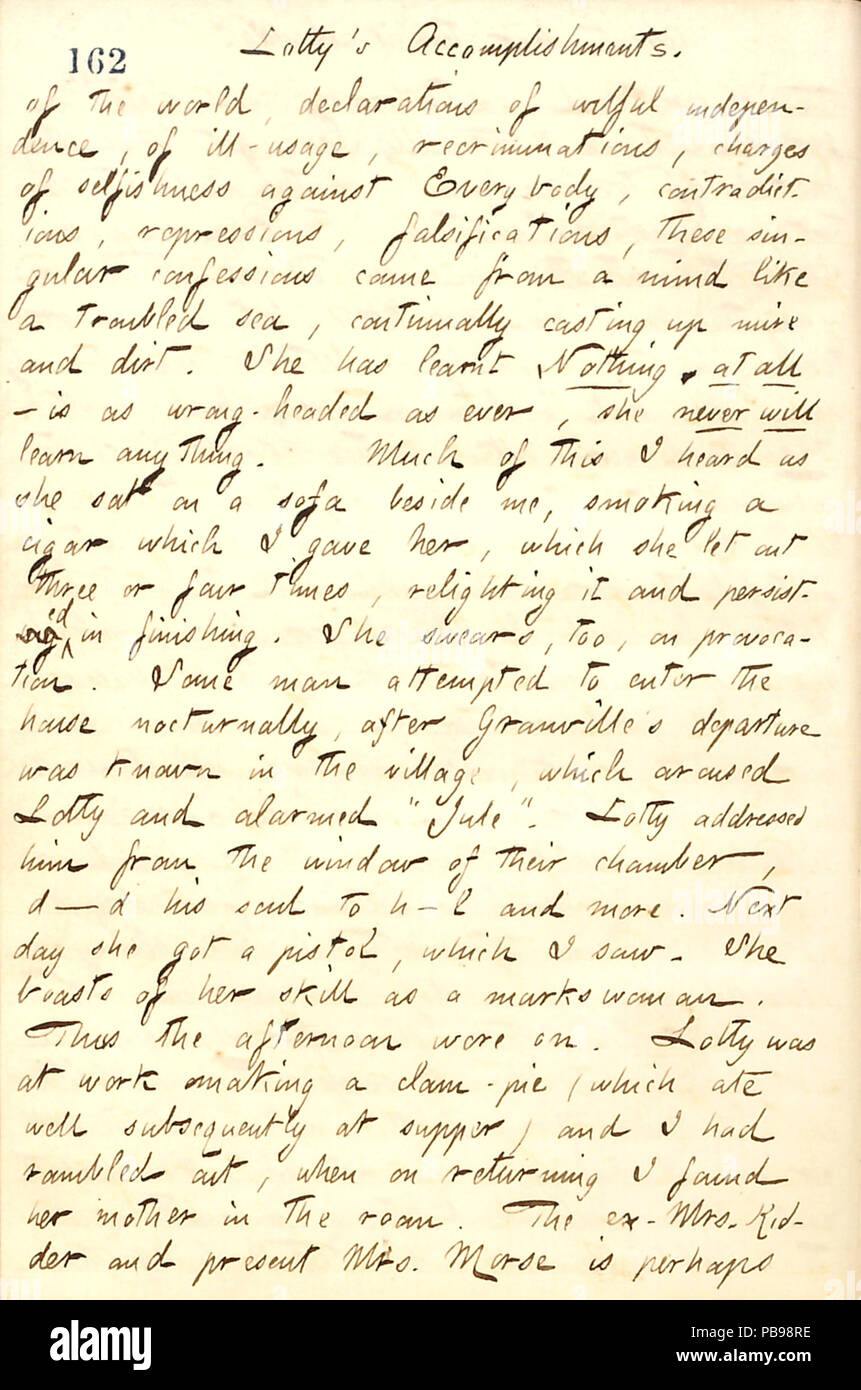 162
Lotty's Accomplishments.
of the world, declarations of wilful indepen-
dence, of ill-usage, recriminations, charges
of selfishness against Everybody, contradict-
ions, repressions, falsifications, these sin-
gular confessions came from a mind like
a troubled sea, continually casting up mire
and dirt. She has learnt Nothing at all
- is as wrong-headed as ever, she never will
learn anything. Much of this I heard as
she sat on a sofa beside me, smoking a
cigar which I gave her, which she let out
three or four times, relighting it and persist-
ed in finishing. She swears, too, on provoca-
tion. Some man attempted to enter the
house nocturnally, after Granville's departure
was known in the village, which aroused
Lotty and alarmed "Jule". Lotty addressed
him from the window of their chamber,
d—d his soul to h-l and more. Next
day she got a pistol, which I saw. She
boasts of her skill as a markswoman.
Thus the afternoon wore on. Lotty was
at work making a clam-pie (which ate
well subsequently at supper) and I had
rambled out, when on returning I found
her mother in the room. The ex-Mrs. Kid-
der and present Mrs. Morse is perhaps
alamy
Image ID: PB98RE
www.alamy.com